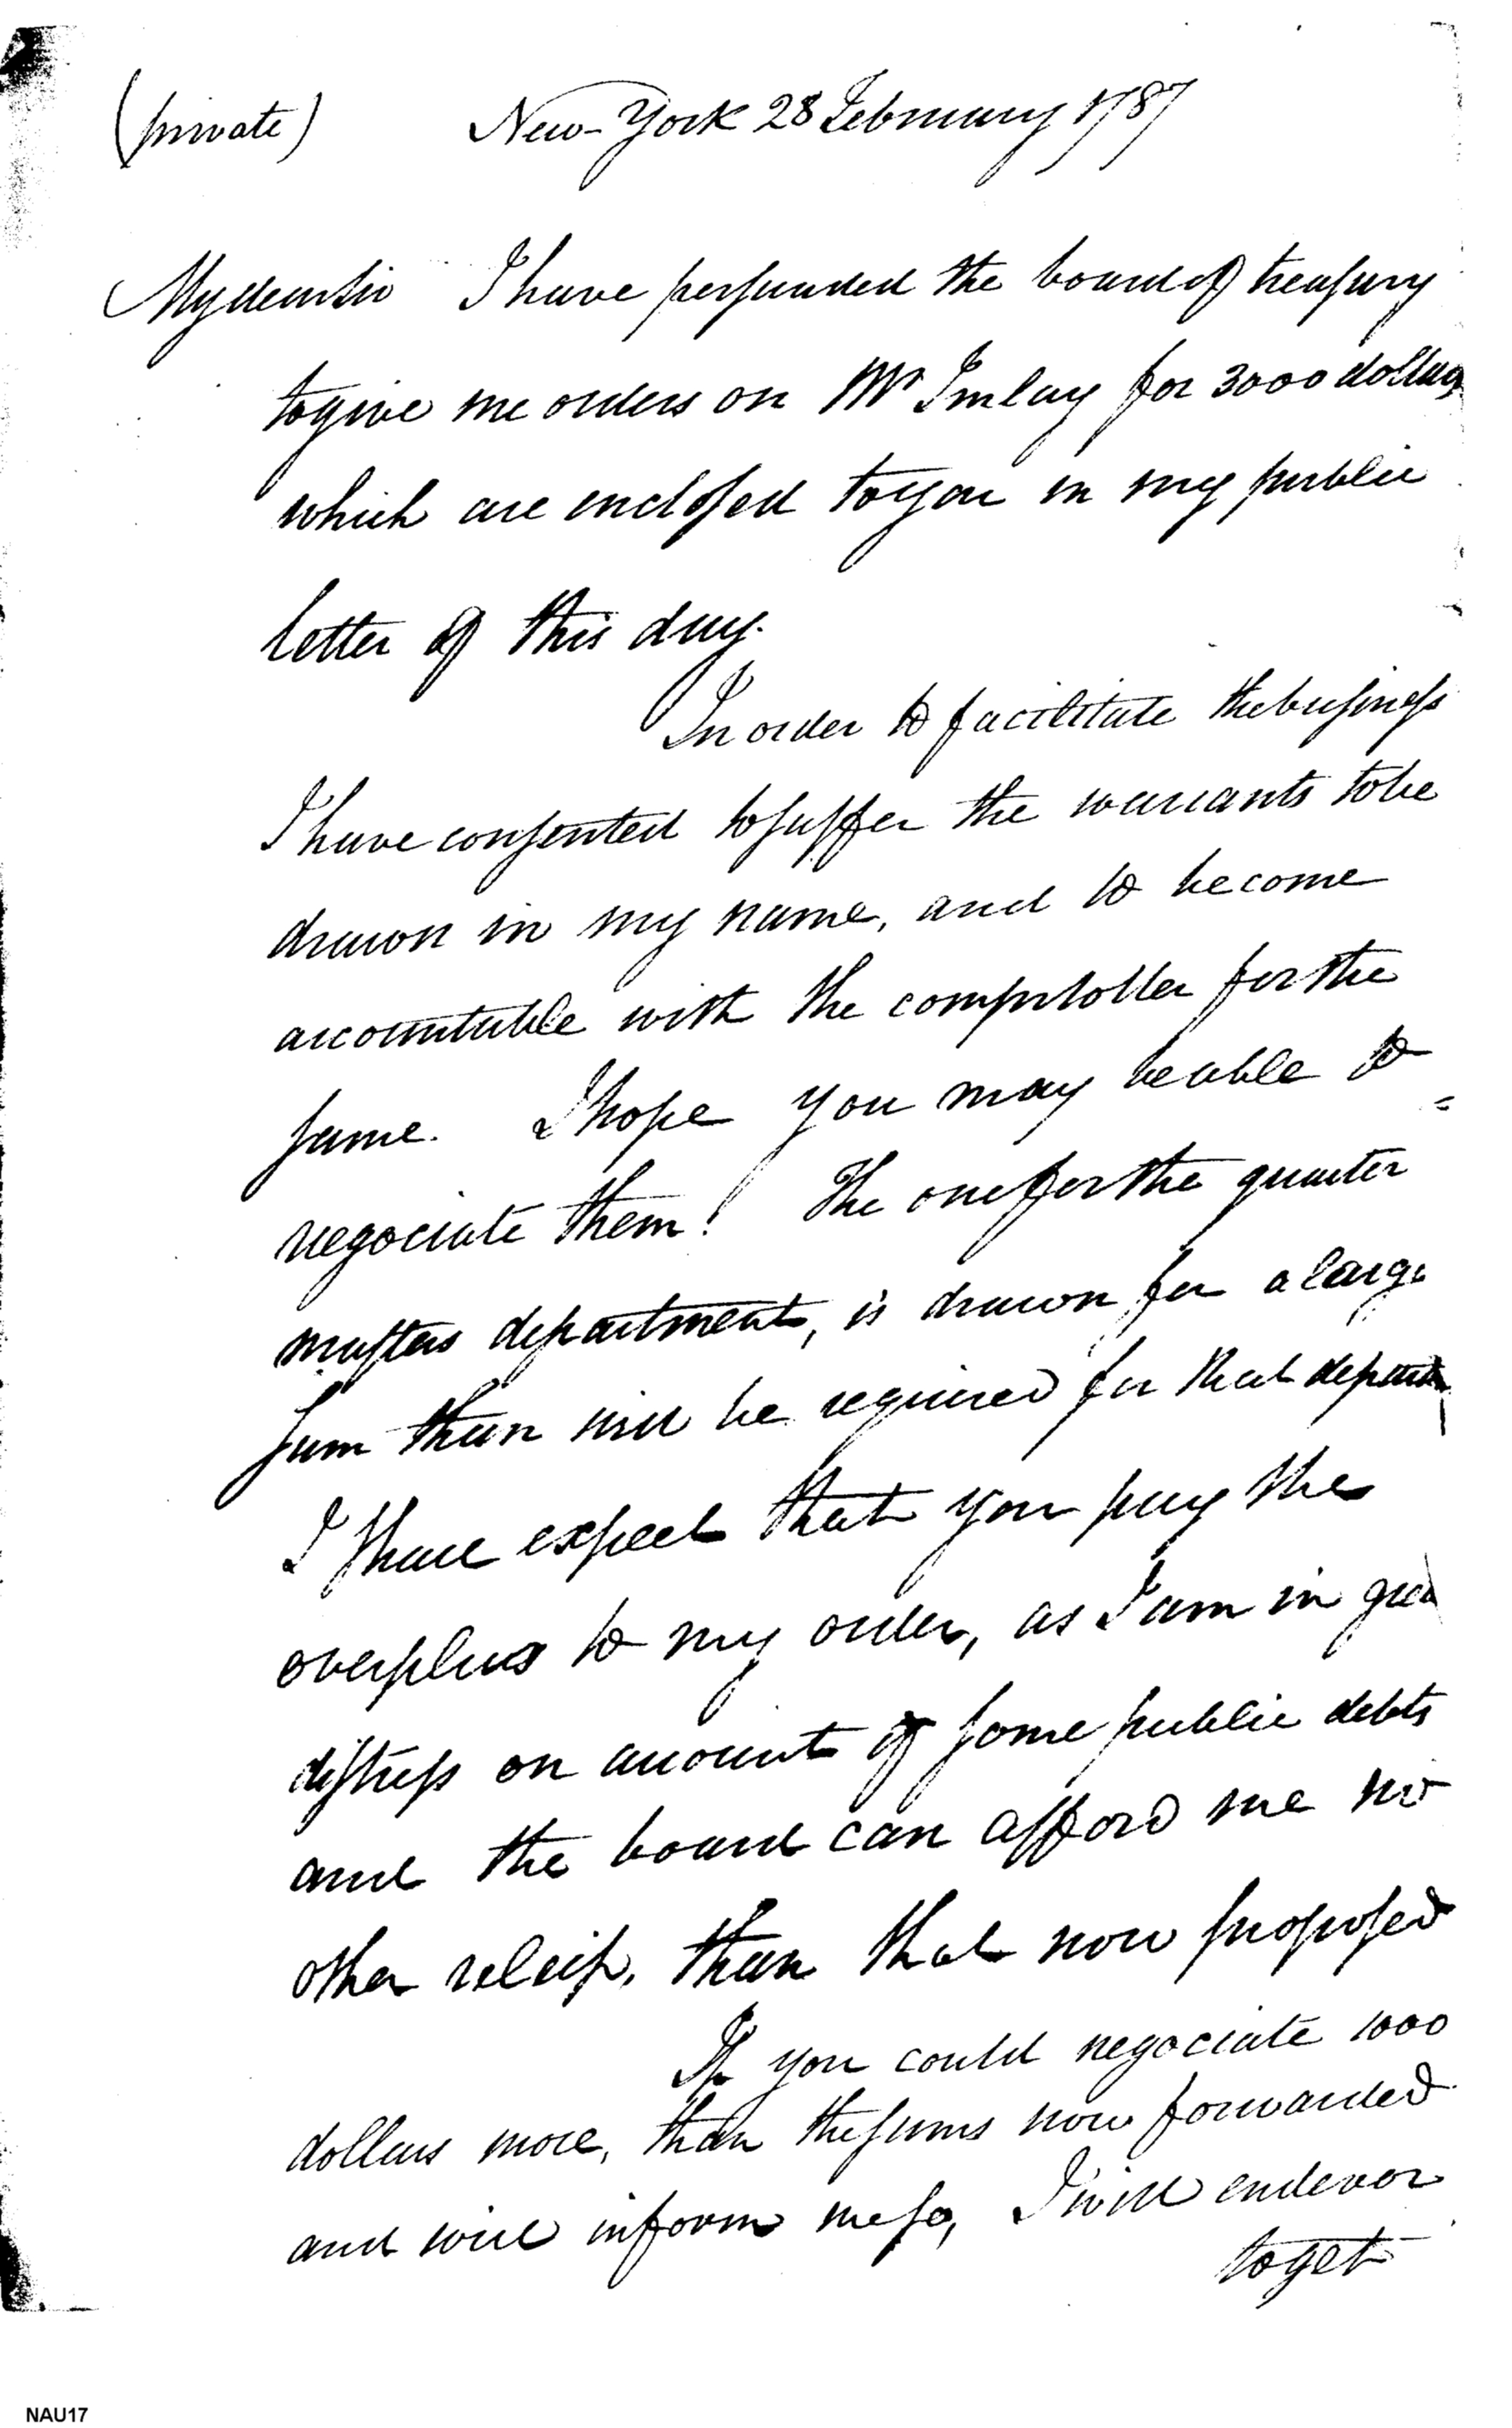 (private) New-York 28 February 1787
My dear sir I have persuaded the board of treasury
to give me orders on Mr Imlay for 3000 dollars
which are enclosed to you in my public
letter of this day.
In order to facilitate the business
I have consented to suffer the warrants to be
drawn in my name, and to become
accountable with the comptroller for the
same. I hope you may be able to
negociate them! The one for the quarter
masters department, is drawn for a large
sum than will be required for that departm
I shall expect that you pay the
overplus to my order, as I am in great
distress on account of some public debts
and the board can afford me no
other releif, than that now proposed
If you could negociate 1000
dollars more, than the sums now forwarded
and will inform me so, I will endevor
to get
NAU17